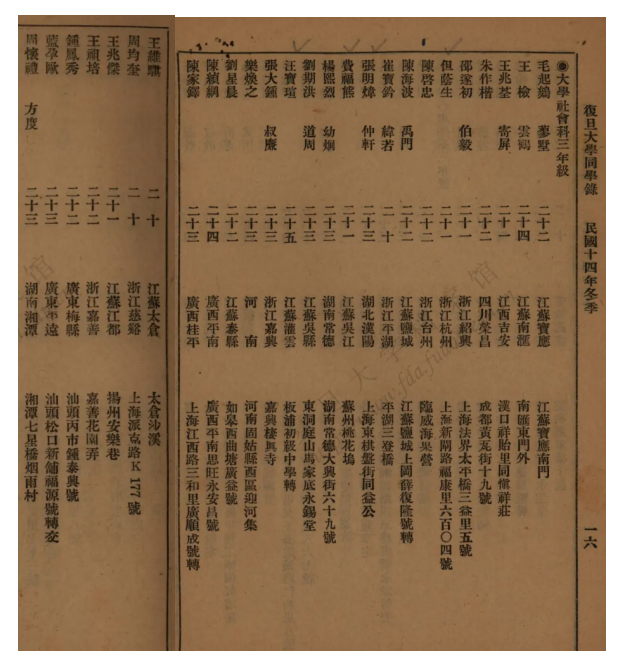 復旦大學同學錄　民國十四年冬季　一六
◉大學社會科三年級
毛起鵕　蓼墅　二十二　江蘇寶應　江蘇寶應南門
王檢　雲鵷　二十四　江蘇南滙　南匯東門外
王兆荃　寄屏　二十一　江西吉安　漢口祥貽里同愼祥莊
朱作楷　二十二　四川榮昌　成都黃瓦街十九號
邵遂初　伯毅　二十一　浙江紹興　上海法界太平橋三益里五號
但蔭生　二十一　浙江杭州　上海新閘路福康里六百〇四號
陳啓忠　二十二　浙江台州　臨海
陳海波　禹門　二十二　江蘇鹽城　江蘇鹽城上岡薛復隆號轉
崔寶鈐　緯若　二十　浙江平湖　平湖三登橋
張明煒　仲軒　二十三　湖北漢陽　上海東棋盤街同益公
費福熊　二十一　江蘇吳江　蘇州桃花塢
楊熙烈　幼炯　二十三　湖南常德　湖南常德大興街六十九號
劉期洪　道周　二十三　江蘇吳縣　東洞庭山嚴家底永錫堂
汪寶瑄　二十五　江蘇灌雲　板浦初級中學轉
張大鍾　叔廉　二十三　浙江嘉興　嘉興棲眞寺
樂煥之　二十三　河南　河南固始縣西區迎河集
劉星晨　二十二　江蘇泰縣　如皋西曲塘廣益號
陳績綱　二十四　廣西平南　廣西平南思旺永安昌號
陳家鐸　二十三　廣西桂平　上海江西路三和里廣順成號轉
王維騏　二十　江蘇太倉　太倉沙溪
周均奎　二十　浙江慈谿　上海派克路K177號
王兆傑　二十一　江蘇江都　揚州安樂巷
王祖培　二十二　浙江嘉善　嘉善花園弄
鍾鳳秀　二十二　廣東梅縣　汕頭丙市鍾泰興號
藍孕歐　二十三　廣東平遠　汕頭松口新舖福源號轉交
周懷禮　方度　二十三　湖南湘潭　湘潭七星橋烟雨村